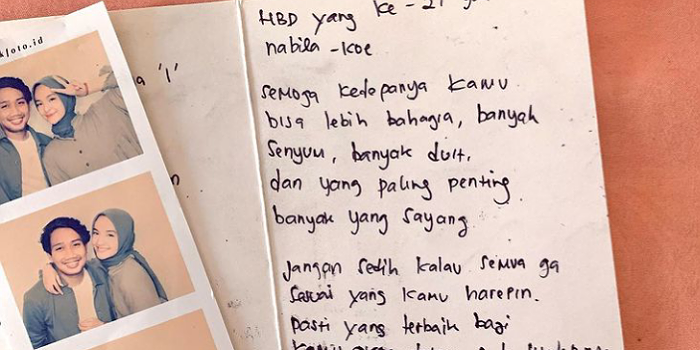 kfoto.id
a '1'
HBD yang ke-21
nabila-koe
semoga kedepanya kamu
bisa lebih bahagia, banyak
senyum, banyak duit,
dan yang paling penting
banyak yang sayang
jangan sedih kalau semua ga
sesuai yang kamu harepin.
pasti yang terbaik bagi